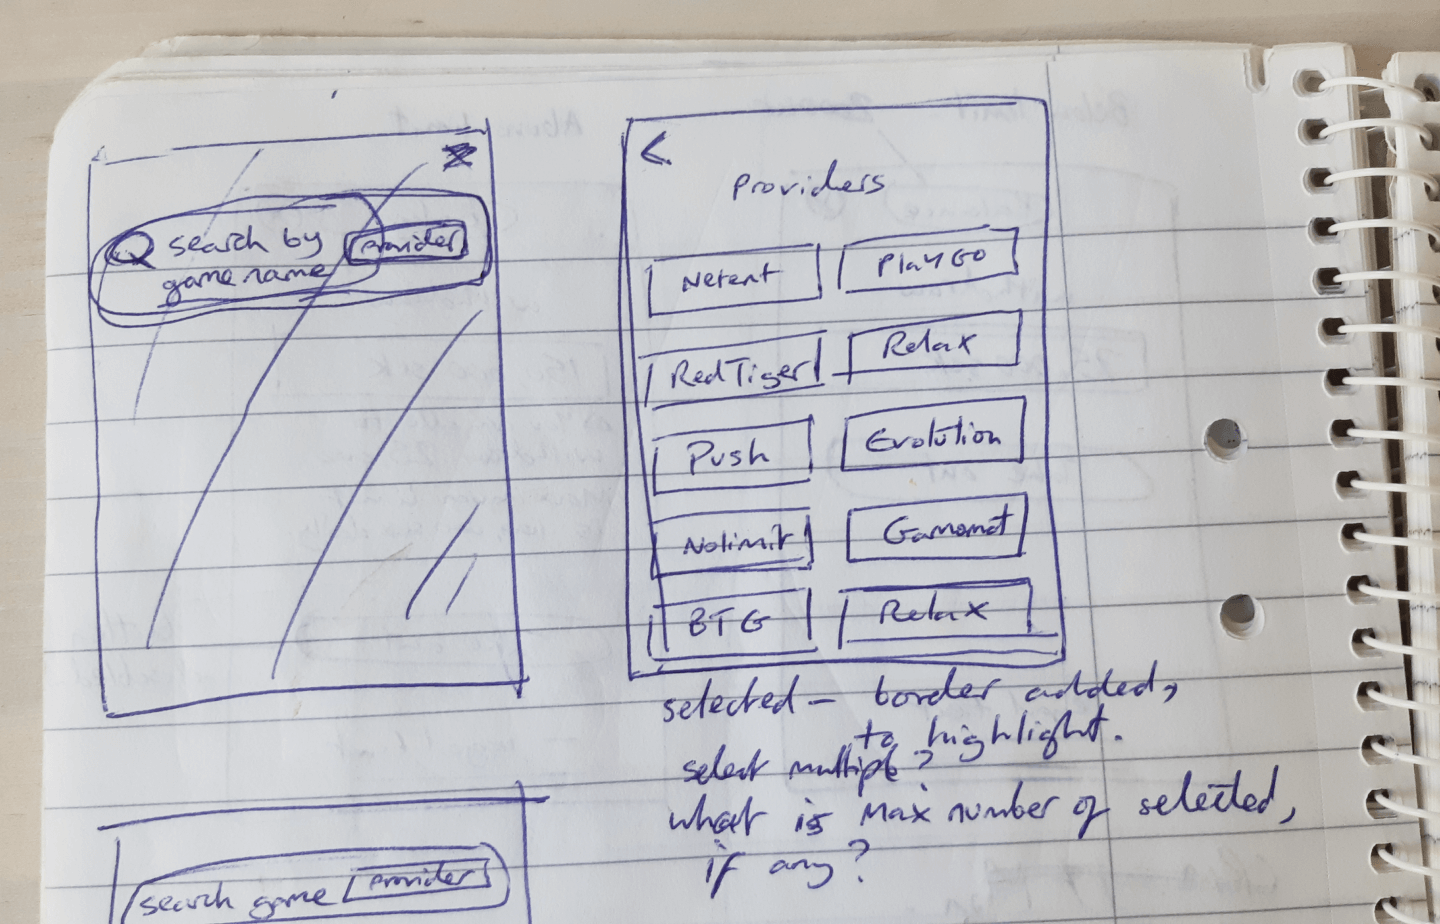 search by
game name
provider
<
Providers
Netent
Play GO
Red Tiger
Relax
Push
Evolution
Nolimit
Gamomat
BTG
Relax
selected – border added,
to highlight.
select multiple?
what is max number of selected,
if any?
search game
provider